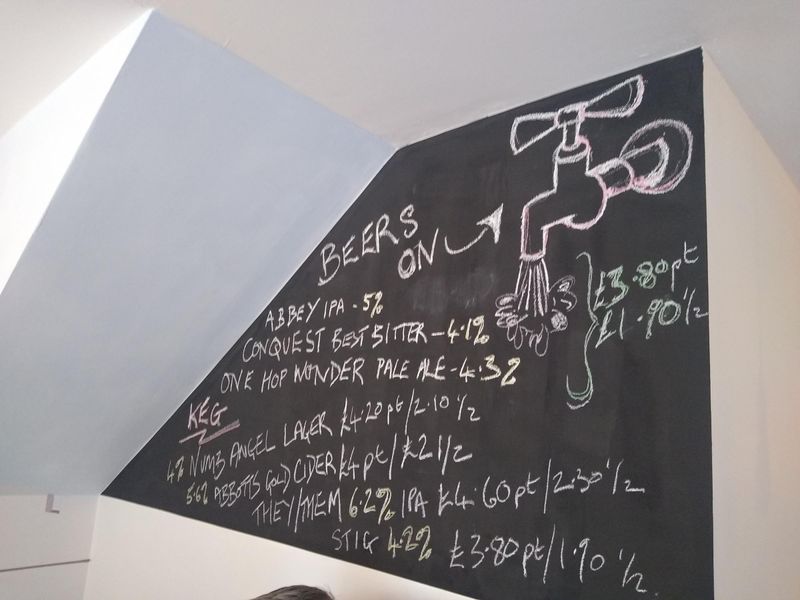 BEERS
ON
ABBEY IPA - 5%
CONQUEST BEST BITTER - 4.1%
ONE HOP WONDER PALE ALE - 4.3%
£3.80pt
£1.90 1/2
KEG
4% NUMB ANGEL LAGER £4.20pt/2.10 1/2
5.6% ABBOTTS GOLD CIDER £4pt/£2 1/2
THEY/THEM 6.2% IPA £4.60pt/2.30 1/2
STIG 4.2% £3.80pt/1.90 1/2